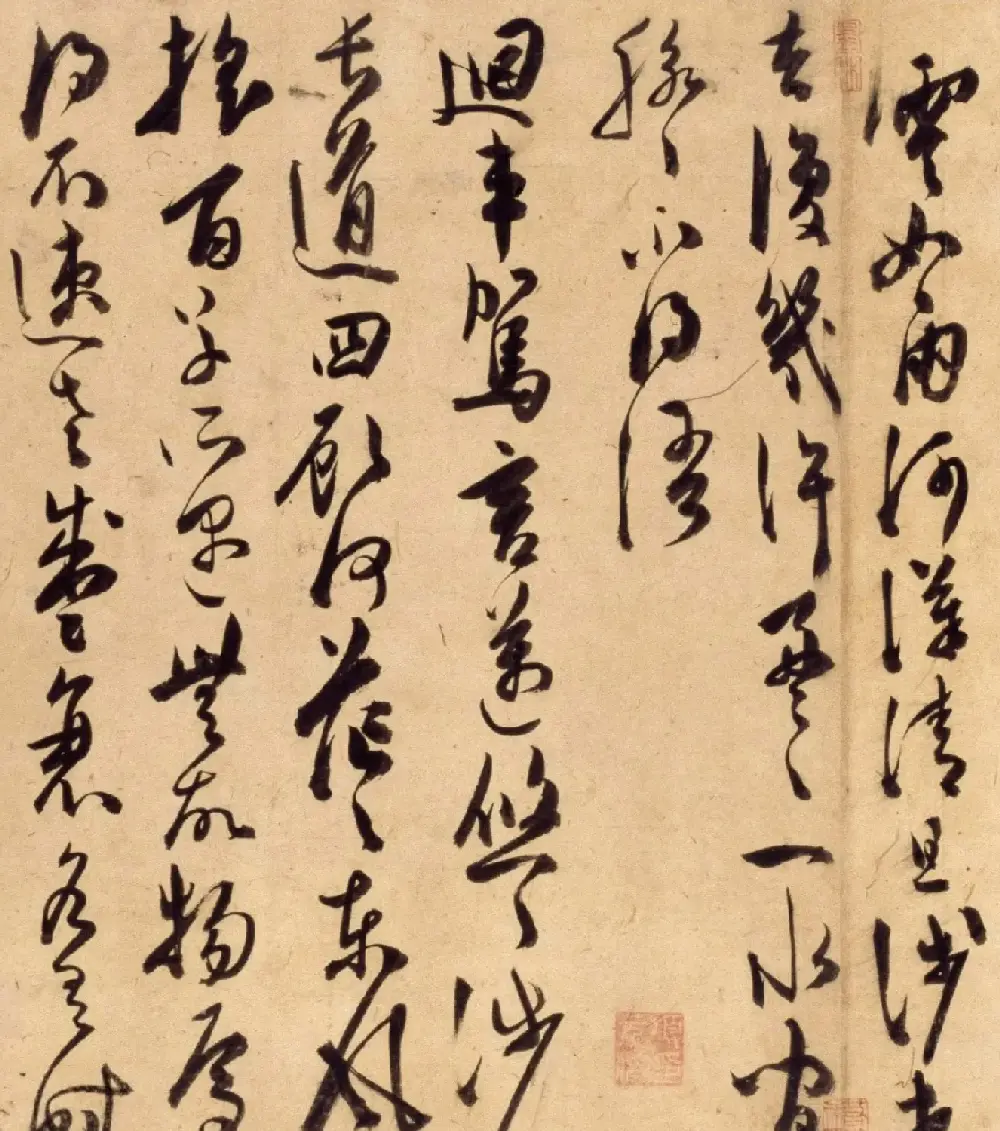 零如雨河漢清且淺相
去復幾許盈々一水間
脉々不得語
迴車駕言邁悠々涉
長道四顧何茫々東風
搖百草所遇無故物焉
得不速老盛衰各有時